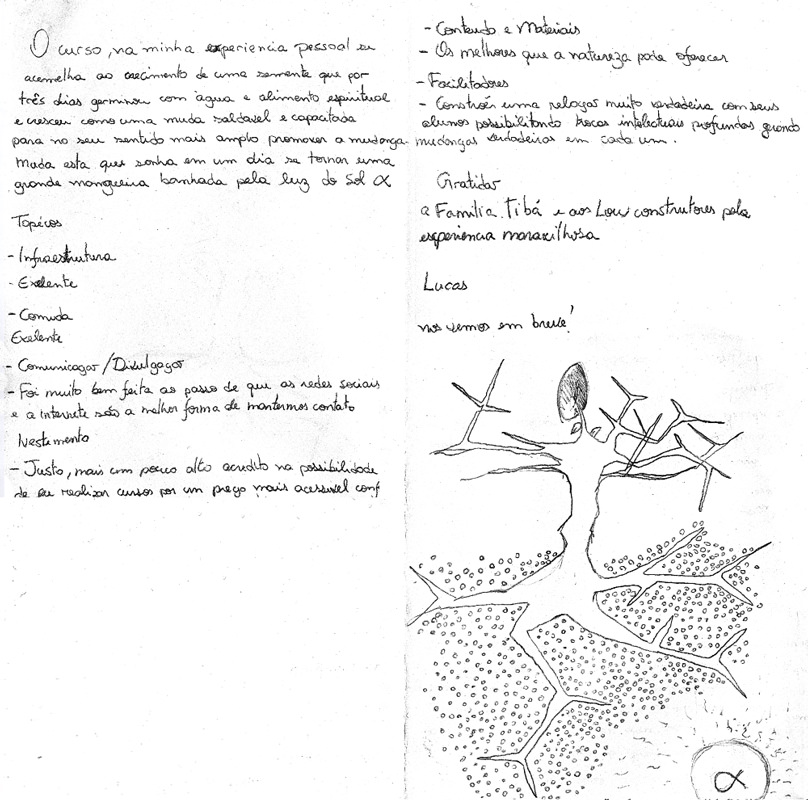 O curso, na minha experiencia pessoal eu
acemelha ao crecimento de uma semente que por
três dias germinou com água e alimento espiritual
e cresceu como uma muda saldavel e capacitada
para no seu sentido mais amplo promover a mudança.
Muda esta que sonha em um dia se tornar uma
grande mangueira banhada pela luz do Sol α
Topécos
- Infraestrutura
- Exelente
- Comida
Exelente
- Comunicaçao/Divulgaçao
- Foi muito bem feita ao passo de que as redes sociais
e a internete são a melhor forma de mantermos contato
Ivestimento
- Justo, mais um pouco alto acredito na possibilidade
de se realizar cursos por um preço mais acessivel conf
- Conteudo e Materiais
- Os melhores que a natureza pode oferecer
- Facilitadores
- Constroi uma relaçao muito verdadeira com seus
alunos possibilitando trocas intelectuais profundas gerando
mudanças verdadeiras em cada um.
Gratidao
a Família Tibá e aos Low construtores pela
experiencia maravilhosa
Lucas
nos vemos em breve!
α